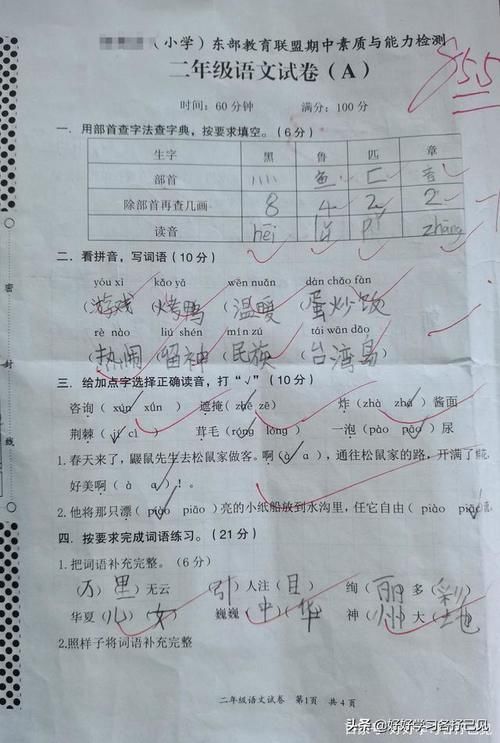 （小学）东部教育联盟期中素质与能力检测
二年级语文试卷（A）
855
时间：60分钟 满分：100分
一．用部首查字法查字典，按要求填空。（6分）
生字 黑 鲁 匹 章
部首 灬 鱼 匚 音
除部首再查几画 8 4 2 2
读音 hēi lǔ pǐ zhāng
二．看拼音，写词语（10分）
yóu xì kǎo yā wēn nuǎn dàn chǎo fàn
（游戏）（烤鸭）（温暖）（蛋炒饭）
rè nào liú shén mín zú tái wān dǎo
（热闹）（留神）（民族）（台湾岛）
三．给加点字选择正确读音，打“√”（10分）
咨询（xún xūn） 遮掩（zhē zē） 炸（zhà zhá）酱面
荆棘（jí cì） 茸毛（róng lóng） 一泡（pào pāo）尿
1.春天来了，鼹鼠先生去松鼠家做客。啊（à a），通往松鼠家的路，开满了花，
好美啊（à a）！。
2.他将那只漂（piào piāo）亮的小纸船放到水沟里，任它自由（piāo piào）
四．按要求完成词语练习。（21分）
1.把词语补充完整。（6分）
（万）（里）无云 （引）人注（目） 绚（丽）多（彩）
华夏（儿）（女） 巍巍（中）（华） 神（州）大（地）
2.照样子将词语补充完整
二年级语文试卷 第1页 共4页
密
封
线
头条 @好好学习各抒己见